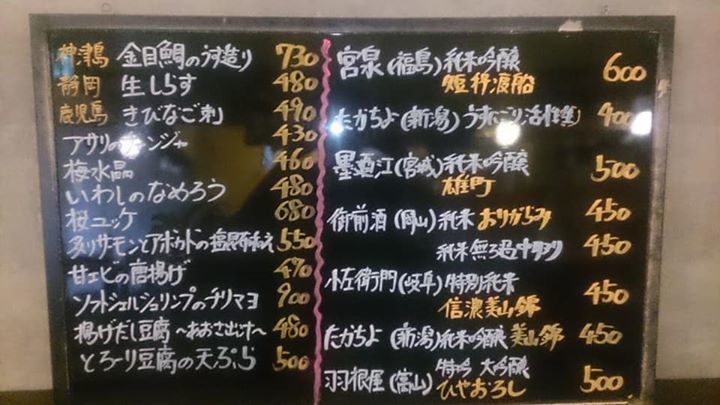 神津島 金目鯛のうす造り 730
静岡 生しらす 480
鹿児島 きびなご刺 490
アサリのチャンジャ 430
梅水晶 460
いわしのなめろう 480
桜ユッケ 680
炙りサーモンとアボカドの塩昆布和え 550
甘エビの唐揚げ 470
ソフトシェルシュリンプのチリマヨ 900
揚げだし豆腐〜あおさ出汁〜 480
とろ〜り豆腐の天ぷら 500
宮泉(福島)純米吟醸 600
短稈渡船
たかちよ(新潟)うすにごり活性 400
墨廼江(宮城)純米吟醸 500
雄町
御前酒(岡山)純米 おりがらみ 450
純米無ろ過中汲み 450
小左衛門(岐阜)特別純米 450
信濃美山錦
たかちよ(新潟)純米吟醸 美山錦 450
羽根屋(富山)特吟 大吟醸 500
ひやおろし